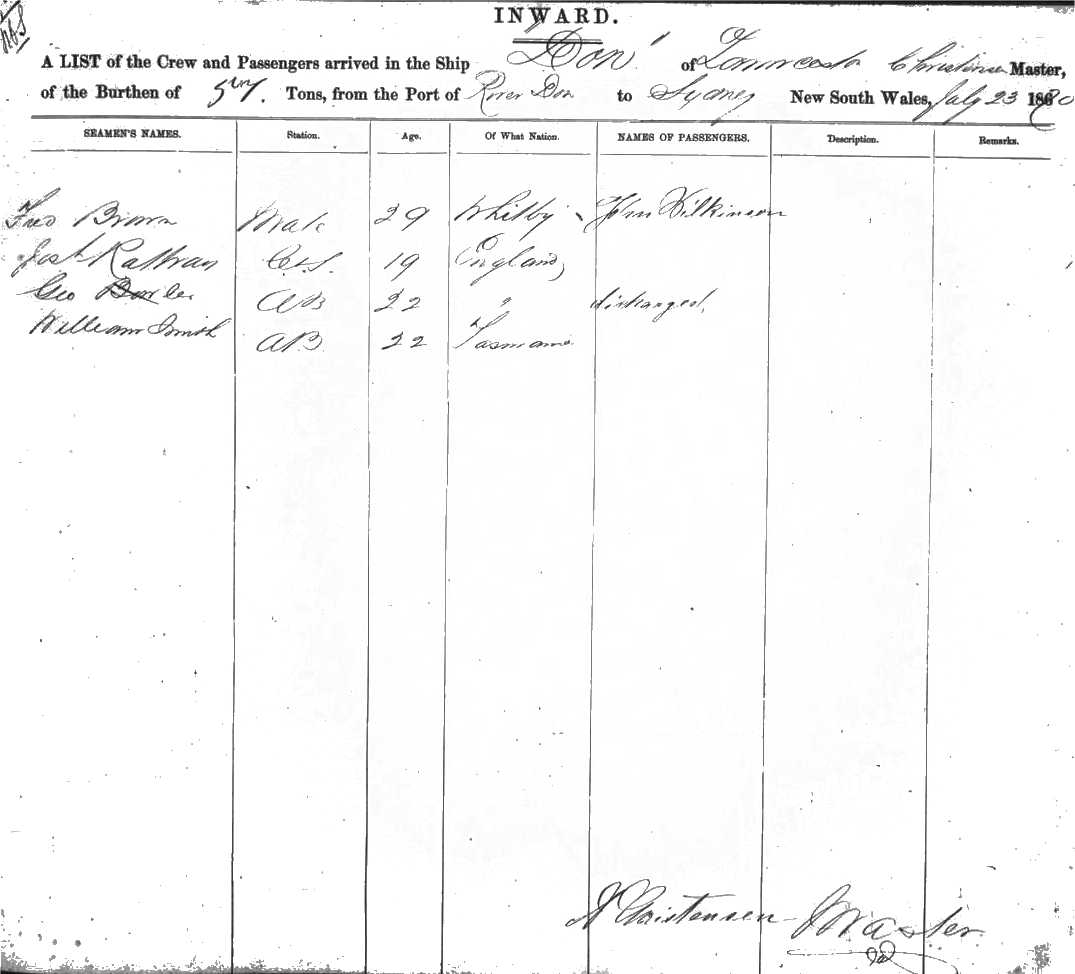 INWARD.
A LIST of the Crew and Passengers arrived in the Ship Don of Launceston Master,
of the Burthen of Tons, from the Port of River Don to Sydney New South Wales, July 23 1880
SEAMEN'S NAMES. Station. Age. Of What Nation. NAMES OF PASSENGERS. Description. Remarks.
Fred Brown Mate 29 Whitby John Wilkinson
19 England
Geo AB 22 " discharged
William Smith AB 22
Christensen Master